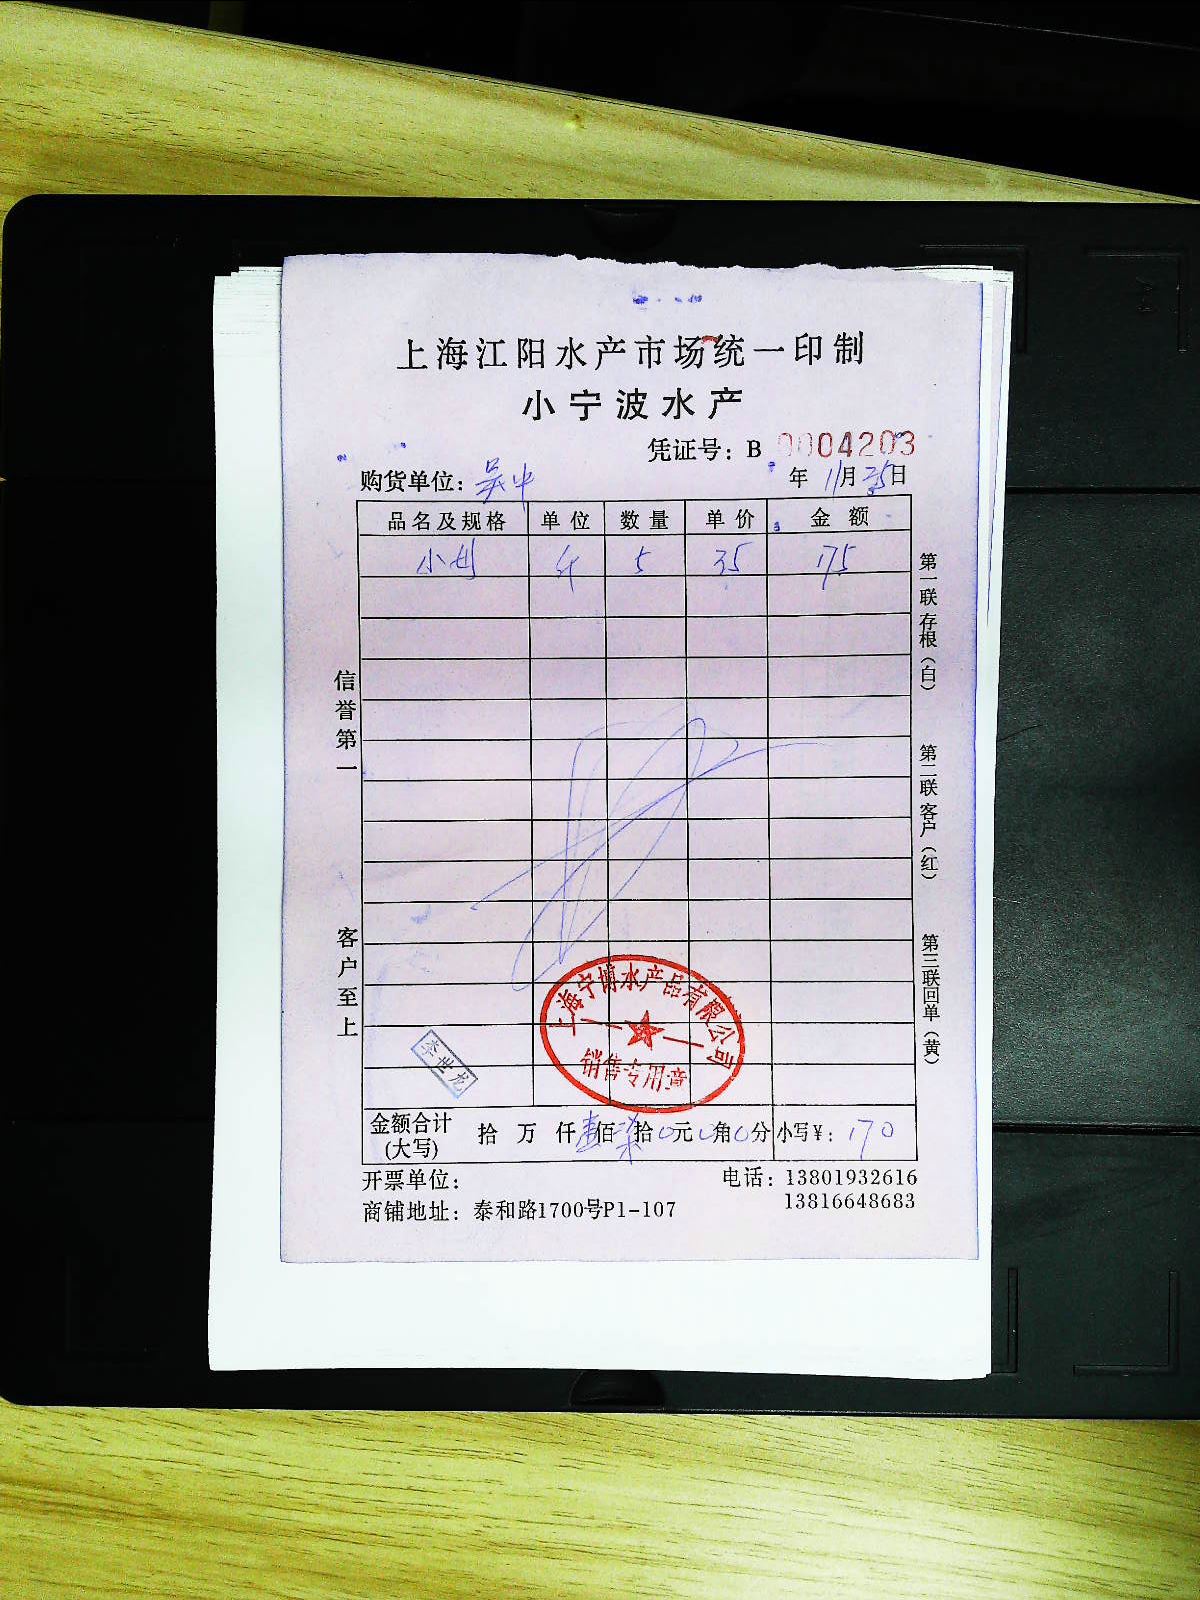 上海江阳水产市场统一印制
小宁波水产
凭证号：B 0004203
购货单位：吴中 年 11月25日
品名及规格 单位 数量 单价 金额
小 斤 5 35 175
信誉第一
客户至上
第一联存根（白）
第二联客户（红）
第三联回单（黄）
上海宁博水产品有限公司
销售专用章
李世龙
金额合计(大写) 拾 万 仟 壹佰 柒拾 0元 0角 0分 小写¥: 170
开票单位： 电话：13801932616
商铺地址：泰和路1700号P1-107 13816648683